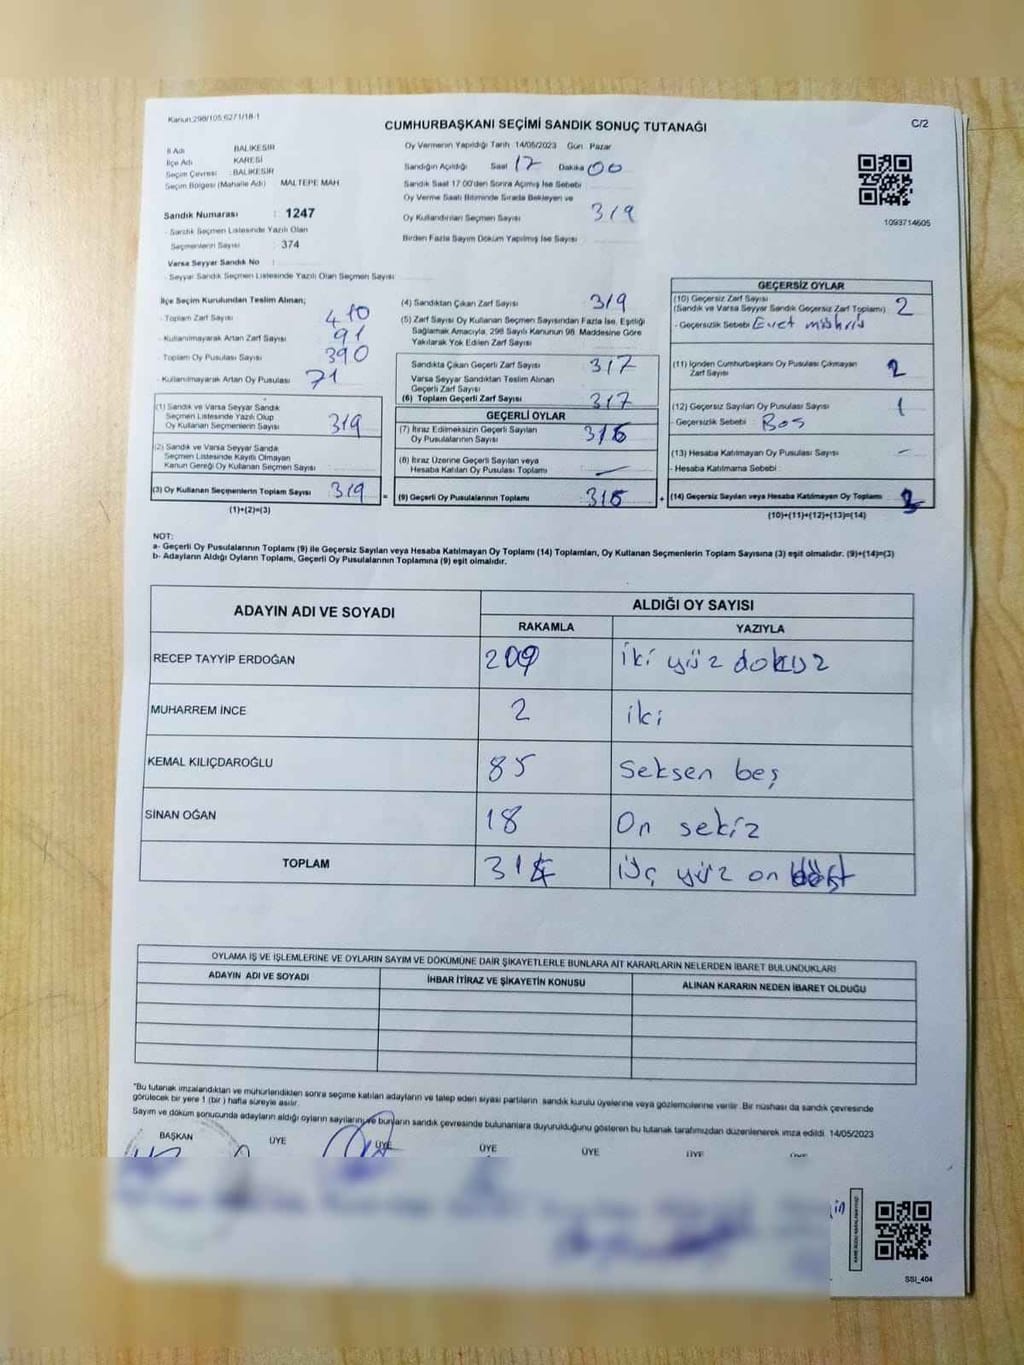 Kanun:298/105;6271/18-1
CUMHURBAŞKANI SEÇİMİ SANDIK SONUÇ TUTANAĞI
C/2
İl Adı BALIKESİR
İlçe Adı KARESİ
Seçim Çevresi : BALIKESİR
Seçim Bölgesi (Mahalle Adı) MALTEPE MAH
Sandık Numarası : 1247
- Sandık Seçmen Listesinde Yazılı Olan
Seçmenlerin Sayısı : 374
Varsa Seyyar Sandık No :
- Seyyar Sandık Seçmen Listesinde Yazılı Olan Seçmen Sayısı
Oy Vermenin Yapıldığı Tarih 14/05/2023 Gün Pazar
Sandığın Açıldığı Saat 17 Dakika 00
Sandık Saat 17.00'den Sonra Açılmış İse Sebebi
Oy Verme Saati Bitiminde Sırada Bekleyen ve
Oy Kullandırılan Seçmen Sayısı 319
Birden Fazla Sayım Döküm Yapılmış İse Sayısı
1093714605
İlçe Seçim Kurulundan Teslim Alınan;
- Toplam Zarf Sayısı 410
- Kullanılmayarak Artan Zarf Sayısı 91
- Toplam Oy Pusulası Sayısı 390
- Kullanılmayarak Artan Oy Pusulası 71
(1) Sandık ve Varsa Seyyar Sandık
Seçmen Listesinde Yazılı Olup
Oy Kullanan Seçmenlerin Sayısı 319
(2) Sandık ve Varsa Seyyar Sandık
Seçmen Listesinde Kayıtlı Olmayan
Kanun Gereği Oy Kullanan Seçmen Sayısı
(3) Oy Kullanan Seçmenlerin Toplam Sayısı 319 =
(1)+(2)=(3)
(4) Sandıktan Çıkan Zarf Sayısı 319
(5) Zarf Sayısı Oy Kullanan Seçmen Sayısından Fazla İse, Eşitliği
Sağlamak Amacıyla, 298 Sayılı Kanunun 98. Maddesine Göre
Yakılarak Yok Edilen Zarf Sayısı
Sandıkta Çıkan Geçerli Zarf Sayısı 317
Varsa Seyyar Sandıktan Teslim Alınan
Geçerli Zarf Sayısı
(6) Toplam Geçerli Zarf Sayısı 317
GEÇERLİ OYLAR
(7) İtiraz Edilmeksizin Geçerli Sayılan
Oy Pusulalarının Sayısı
(8) İtiraz Üzerine Geçerli Sayılan veya
Hesaba Katılan Oy Pusulası Toplamı —
(9) Geçerli Oy Pusulalarının Toplamı +
GEÇERSİZ OYLAR
(10) Geçersiz Zarf Sayısı
(Sandık ve Varsa Seyyar Sandık Geçersiz Zarf Toplamı) 2
- Geçersizlik Sebebi Evet
(11) İçinden Cumhurbaşkanı Oy Pusulası Çıkmayan
Zarf Sayısı 2
(12) Geçersiz Sayılan Oy Pusulası Sayısı 1
- Geçersizlik Sebebi Boş
(13) Hesaba Katılmayan Oy Pusulası Sayısı —
- Hesaba Katılmama Sebebi
(14) Geçersiz Sayılan veya Hesaba Katılmayan Oy Toplamı
(10)+(11)+(12)+(13)=(14)
NOT:
a- Geçerli Oy Pusulalarının Toplamı (9) ile Geçersiz Sayılan veya Hesaba Katılmayan Oy Toplamı (14) Toplamları, Oy Kullanan Seçmenlerin Toplam Sayısına (3) eşit olmalıdır. (9)+(14)=(3)
b- Adayların Aldığı Oyların Toplamı, Geçerli Oy Pusulalarının Toplamına (9) eşit olmalıdır.
ADAYIN ADI VE SOYADI ALDIĞI OY SAYISI
RAKAMLA YAZIYLA
RECEP TAYYİP ERDOĞAN 209 iki yüz dokuz
MUHARREM İNCE 2 iki
KEMAL KILIÇDAROĞLU 85 Seksen beş
SİNAN OĞAN 18 On sekiz
TOPLAM 314 üç yüz on dört
OYLAMA İŞ VE İŞLEMLERİNE VE OYLARIN SAYIM VE DÖKÜMÜNE DAİR ŞİKAYETLERLE BUNLARA AİT KARARLARIN NELERDEN İBARET BULUNDUKLARI
ADAYIN ADI VE SOYADI İHBAR İTİRAZ VE ŞİKAYETİN KONUSU ALINAN KARARIN NEDEN İBARET OLDUĞU
"Bu tutanak imzalandıktan ve mühürlendikten sonra seçime katılan adayların ve talep eden siyasi partilerin sandık kurulu üyelerine veya gözlemcilerine verilir. Bir nüshası da sandık çevresinde
görülecek bir yere 1 (bir) hafta süreyle asılır.
Sayım ve döküm sonucunda adayların aldığı oyların sayılarını ve bunların sandık çevresinde bulunanlara duyurulduğunu gösteren bu tutanak tarafımızdan düzenlenerek imza edildi. 14/05/2023
BAŞKAN ÜYE ÜYE ÜYE ÜYE ÜYE
SSI_404